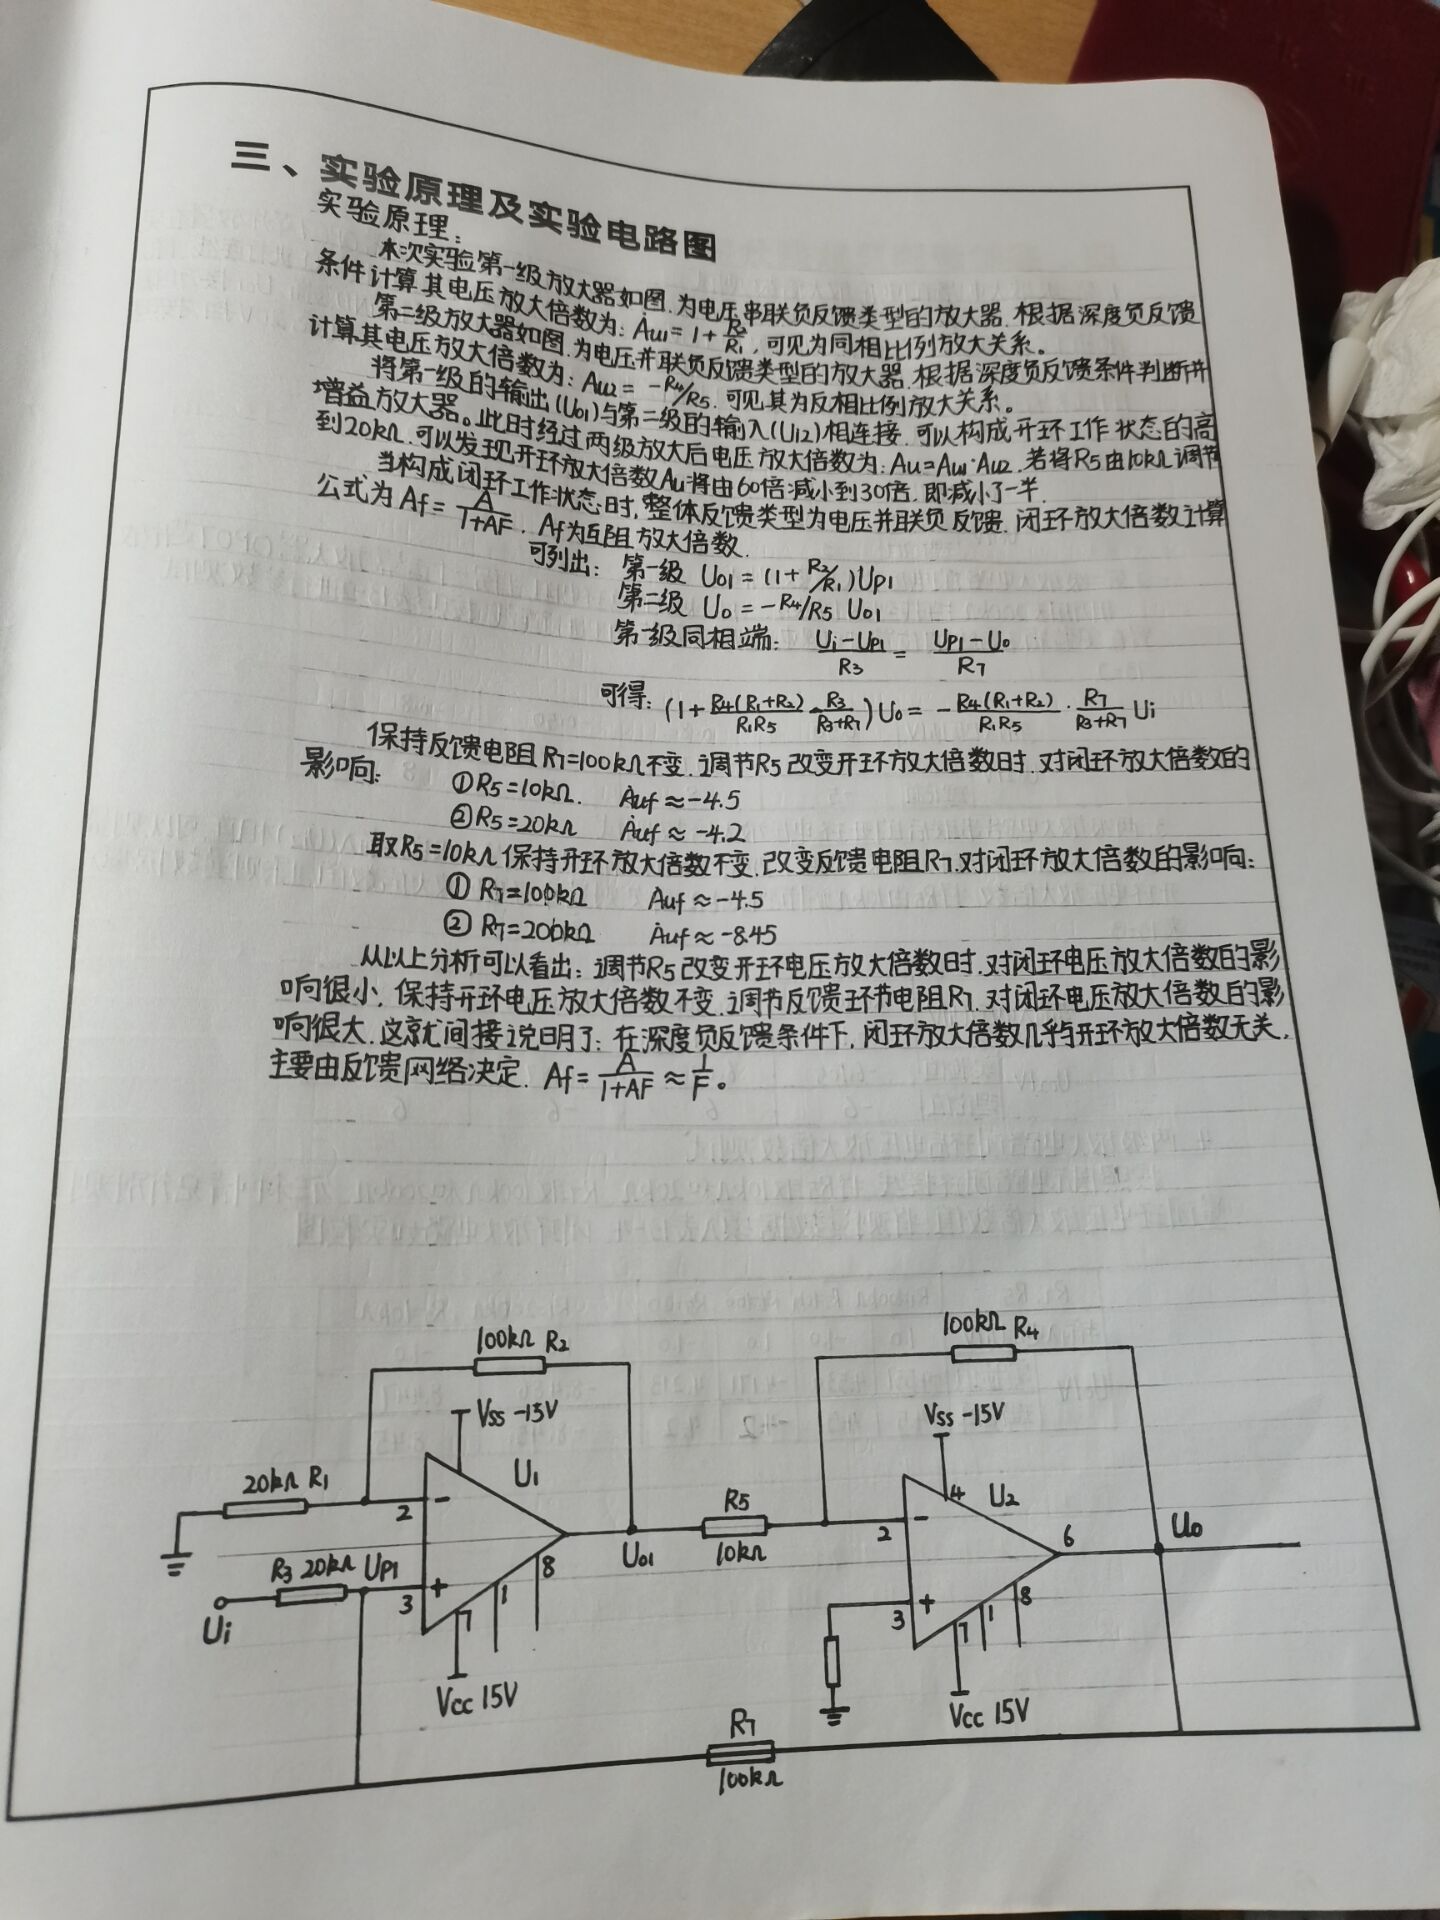 三、实验原理及实验电路图
实验原理:
本次实验第一级放大器如图.为电压串联负反馈类型的放大器.根据深度负反馈
条件计算其电压放大倍数为: Au1=1+R2/R1,可见为同相比例放大关系。
第二级放大器如图.为电压并联负反馈类型的放大器.根据深度负反馈条件判断并
计算其电压放大倍数为: Au2= -R4/R5.可见其为反相比例放大关系。
将第一级的输出(Uo1)与第二级的输入(Ui2)相连接.可以构成开环工作状态的高
增益放大器。此时经过两级放大后电压放大倍数为: Au=Au1·Au2.若将R5由10kΩ调节
到20kΩ.可以发现开环放大倍数Au将由60倍减小到30倍.即减小了一半.
当构成闭环工作状态时,整体反馈类型为电压并联负反馈.闭环放大倍数计算
公式为 Af= A/1+AF . Af为互阻放大倍数.
可列出: 第一级 Uo1=(1+R2/R1)Up1
第二级 Uo=-R4/R5 Uo1
第一级同相端: Ui-Up1/R3 = Up1-Uo/R7
可得: (1+ R4(R1+R2)/R1R5 · R3/R3+R7)Uo= - R4(R1+R2)/R1R5 · R7/R3+R7 Ui
保持反馈电阻R7=100kΩ不变.调节R5改变开环放大倍数时.对闭环放大倍数的
影响:
①R5=10kΩ. Auf≈-4.5
②R5=20kΩ Auf≈-4.2
取R5=10kΩ保持开环放大倍数不变.改变反馈电阻R7.对闭环放大倍数的影响:
① R7=100kΩ Auf≈-4.5
② R7=200kΩ Auf≈-8.45
从以上分析可以看出:调节R5改变开环电压放大倍数时.对闭环电压放大倍数的影
响很小.保持开环电压放大倍数不变.调节反馈环节电阻R7.对闭环电压放大倍数的影
响很大.这就间接说明了:在深度负反馈条件下,闭环放大倍数几乎与开环放大倍数无关.
主要由反馈网络决定. Af= A/1+AF ≈ 1/F。
100kΩ R2
100kΩ R4
Vss -15V
Vss -15V
20kΩ R1
2
-
U1
R5
10kΩ
2
-
4
U2
6
Uo
R3 20kΩ Up1
3
+
7
1
8
Uo1
Ui
3
+
7
1
8
Vcc 15V
Vcc 15V
R7
100kΩ